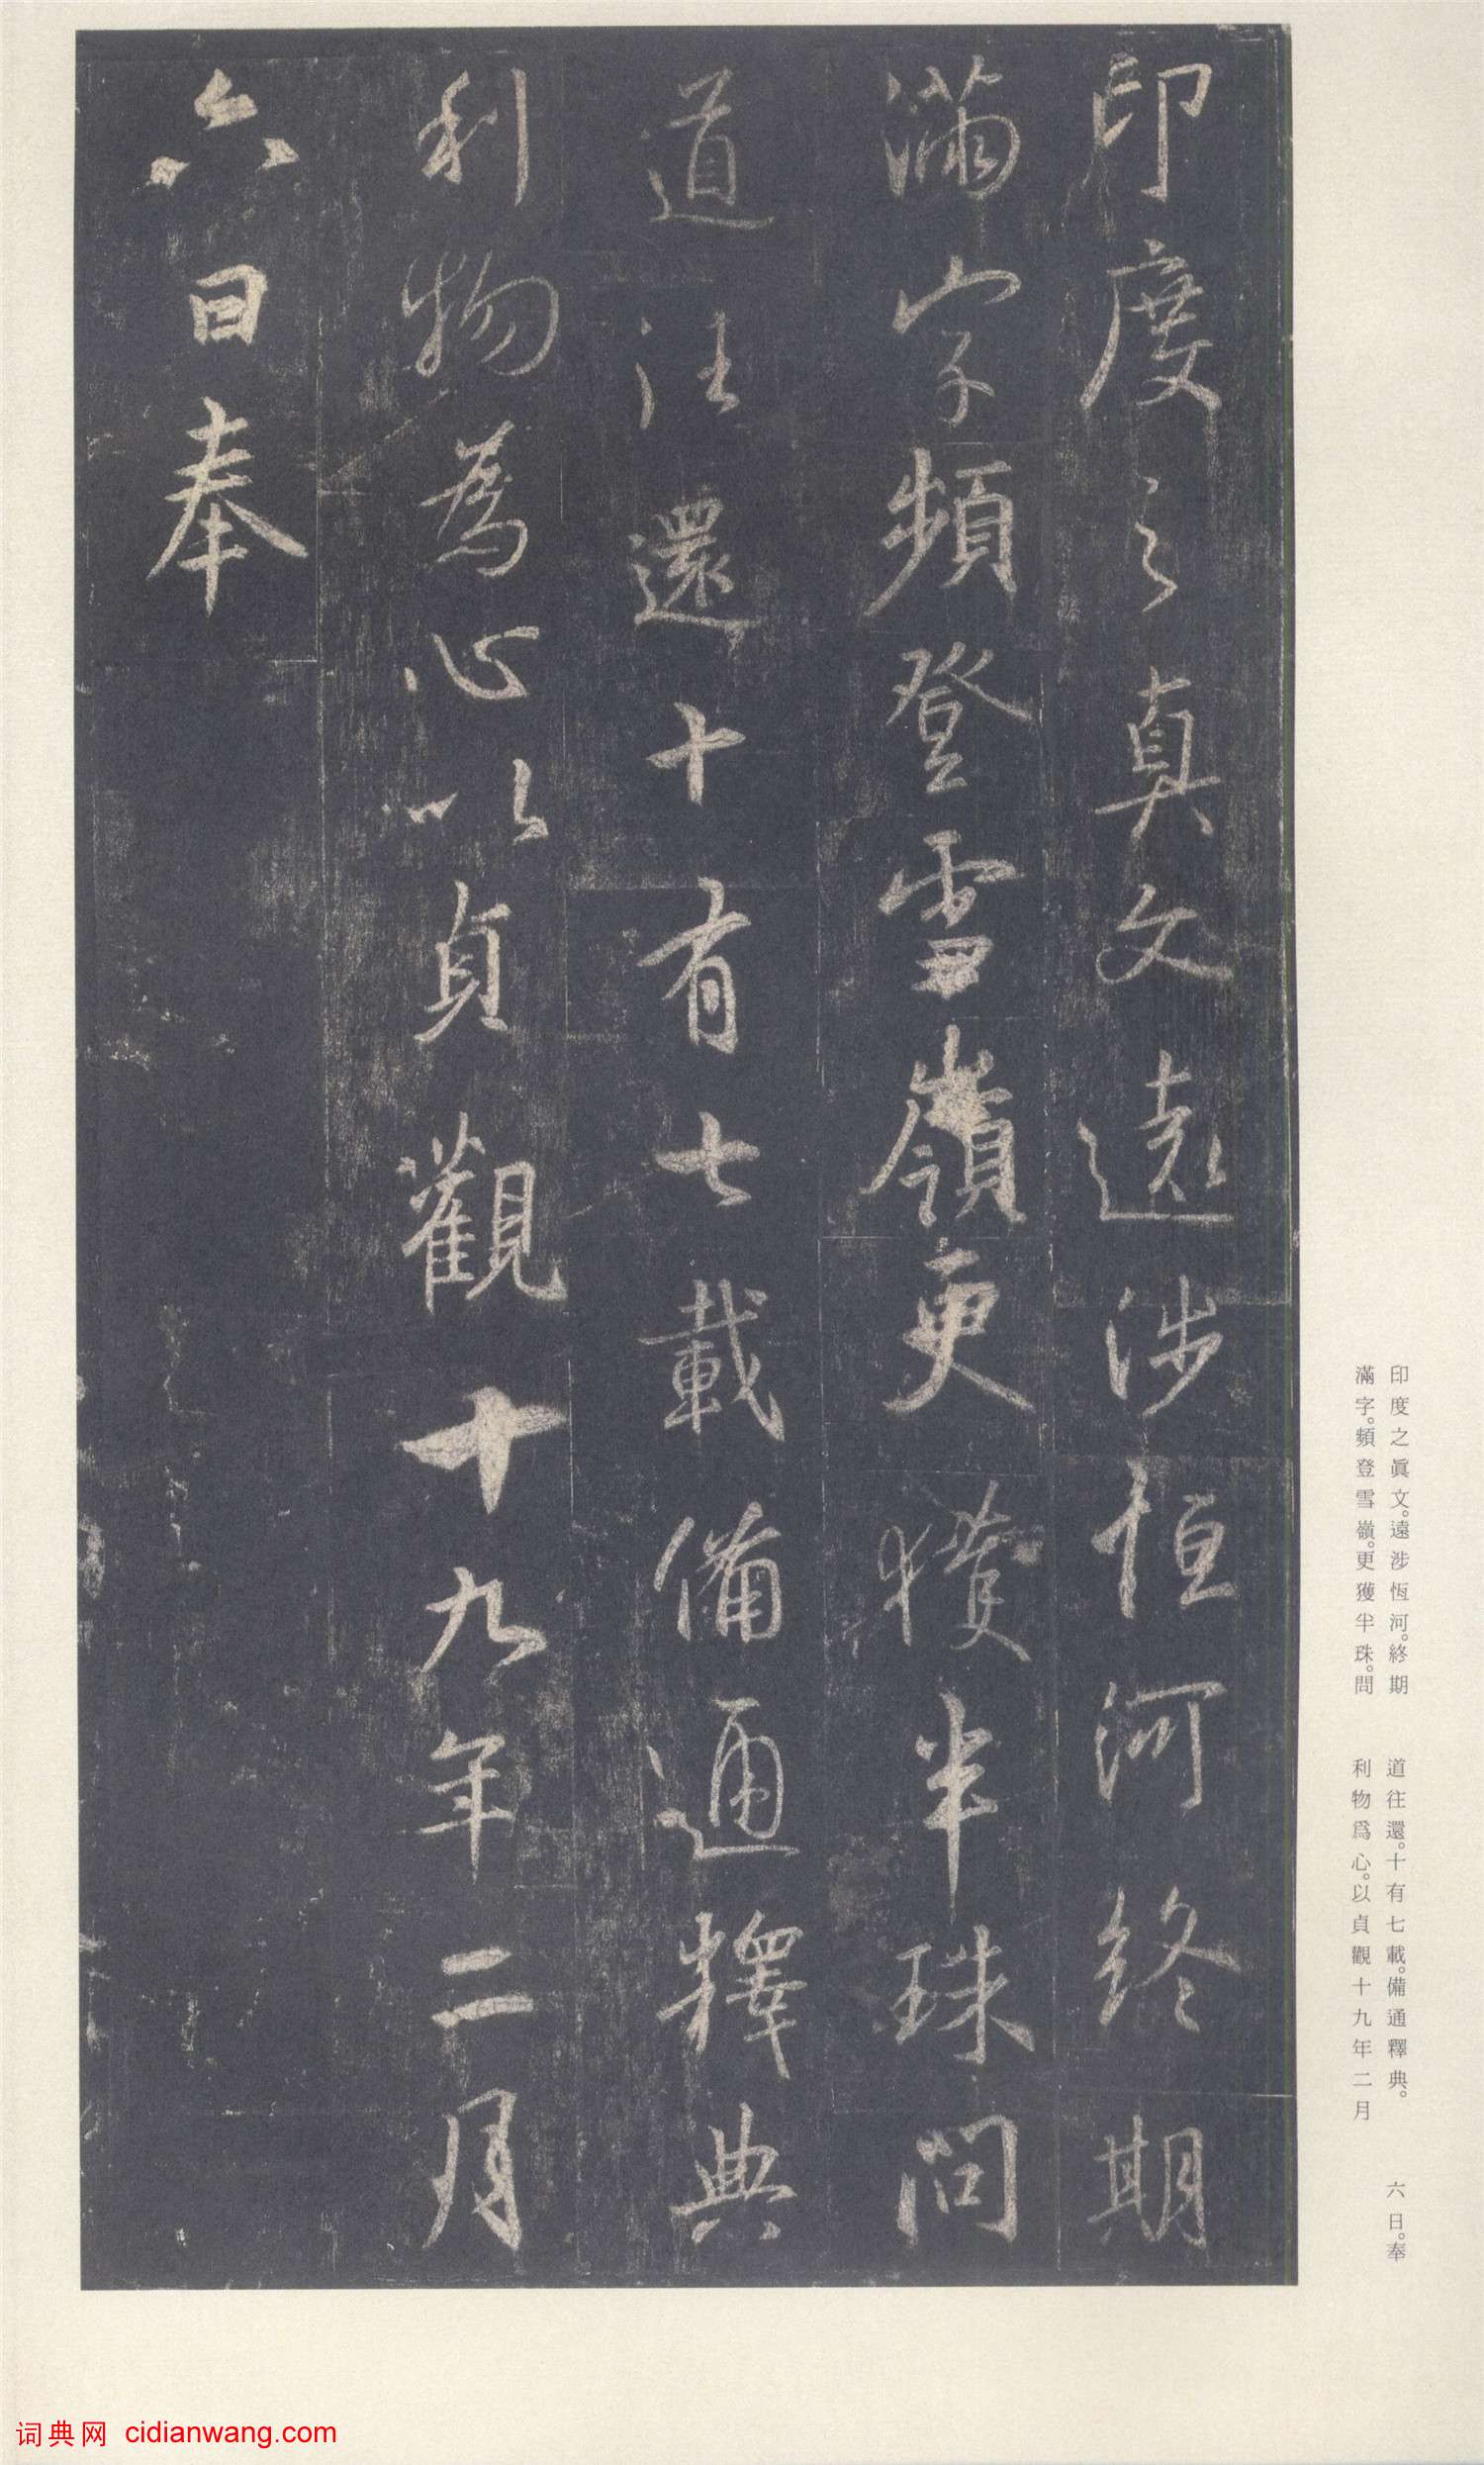 印度之真文遠涉恒河終期
滿字頻登雪嶺更獲半珠問
道往還十有七載備通釋典
利物為心以貞觀十九年二月
六日奉
印度之眞文。遠涉恆河。終期
滿字。頻登雪嶺。更獲半珠。問
道往還。十有七載。備通釋典。
利物爲心。以貞觀十九年二月
六日。奉
词典网 cidianwang.com